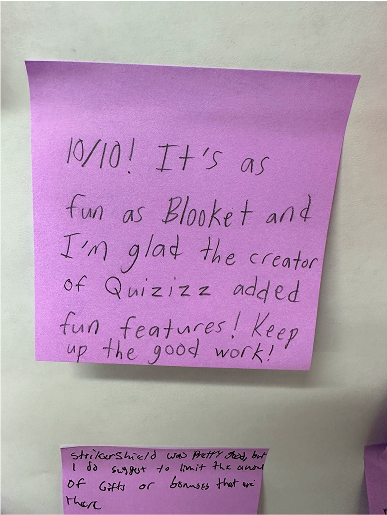 10/10! It's as
fun as Blooket and
I'm glad the creator
of Quizizz added
fun features! Keep
up the good work!
strikershield was pretty good, but
I do suggest to limit the
of Gifts or bonuses that
there